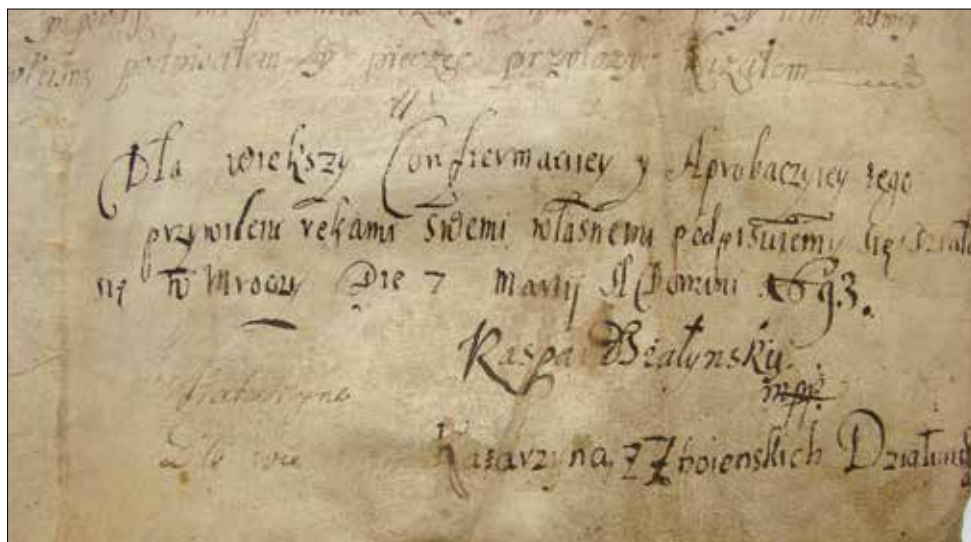 podpisałem y pieczęć przyłozyc kazałem
Dla wiekszy Confirmacyiey y Aprobaczyiey tego
przywileiu rękami swemi własnemi podpisuiemy się Działo
się w Mroczy Die 7 Martij A Domini 1693.
Kaspar Działynsky
mpp.
Katarzyna
Zbo
Katarzyna z Zboienskich Działyns